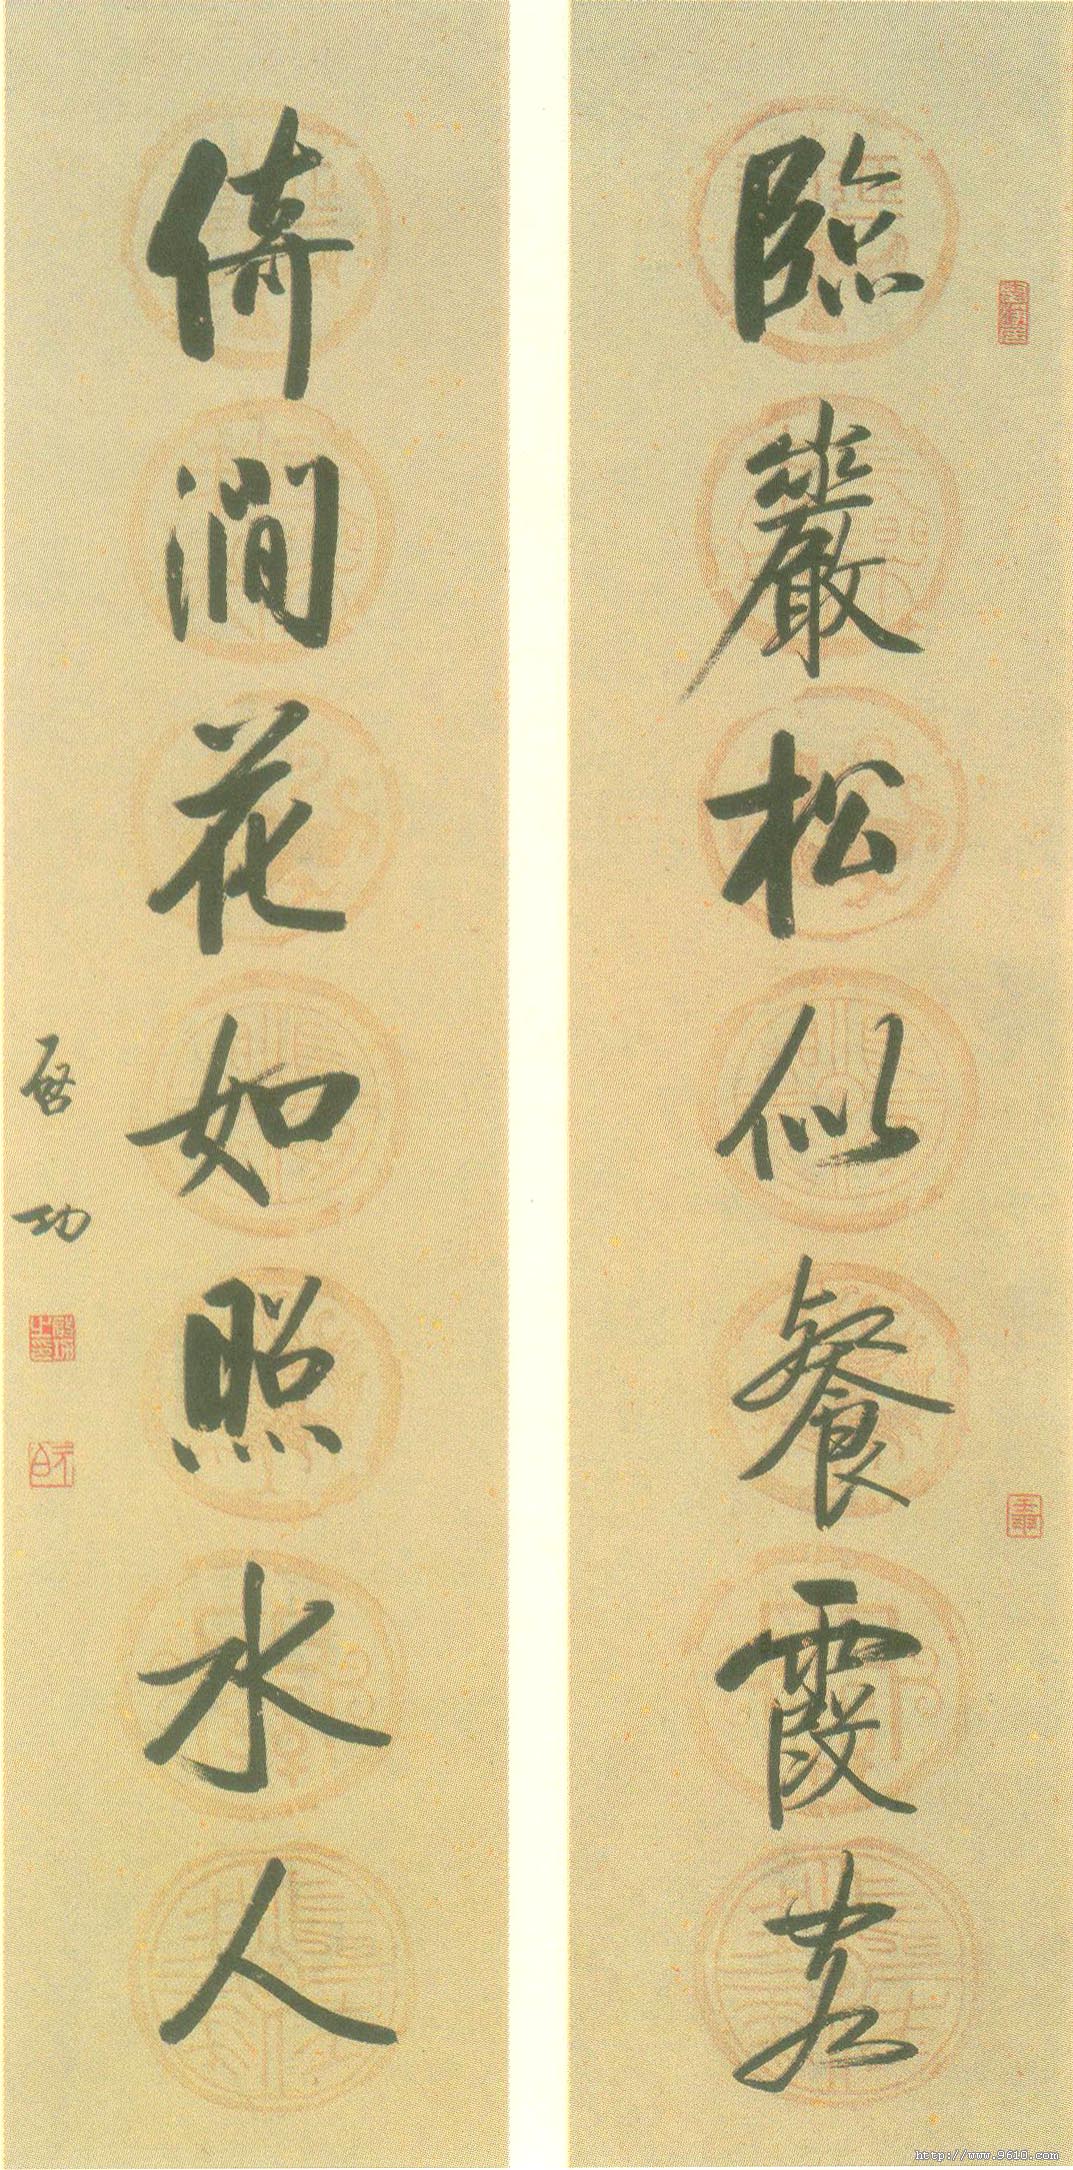 臨巖松似餐霞客
倚澗花如照水人
啓功
http://www.9610.com